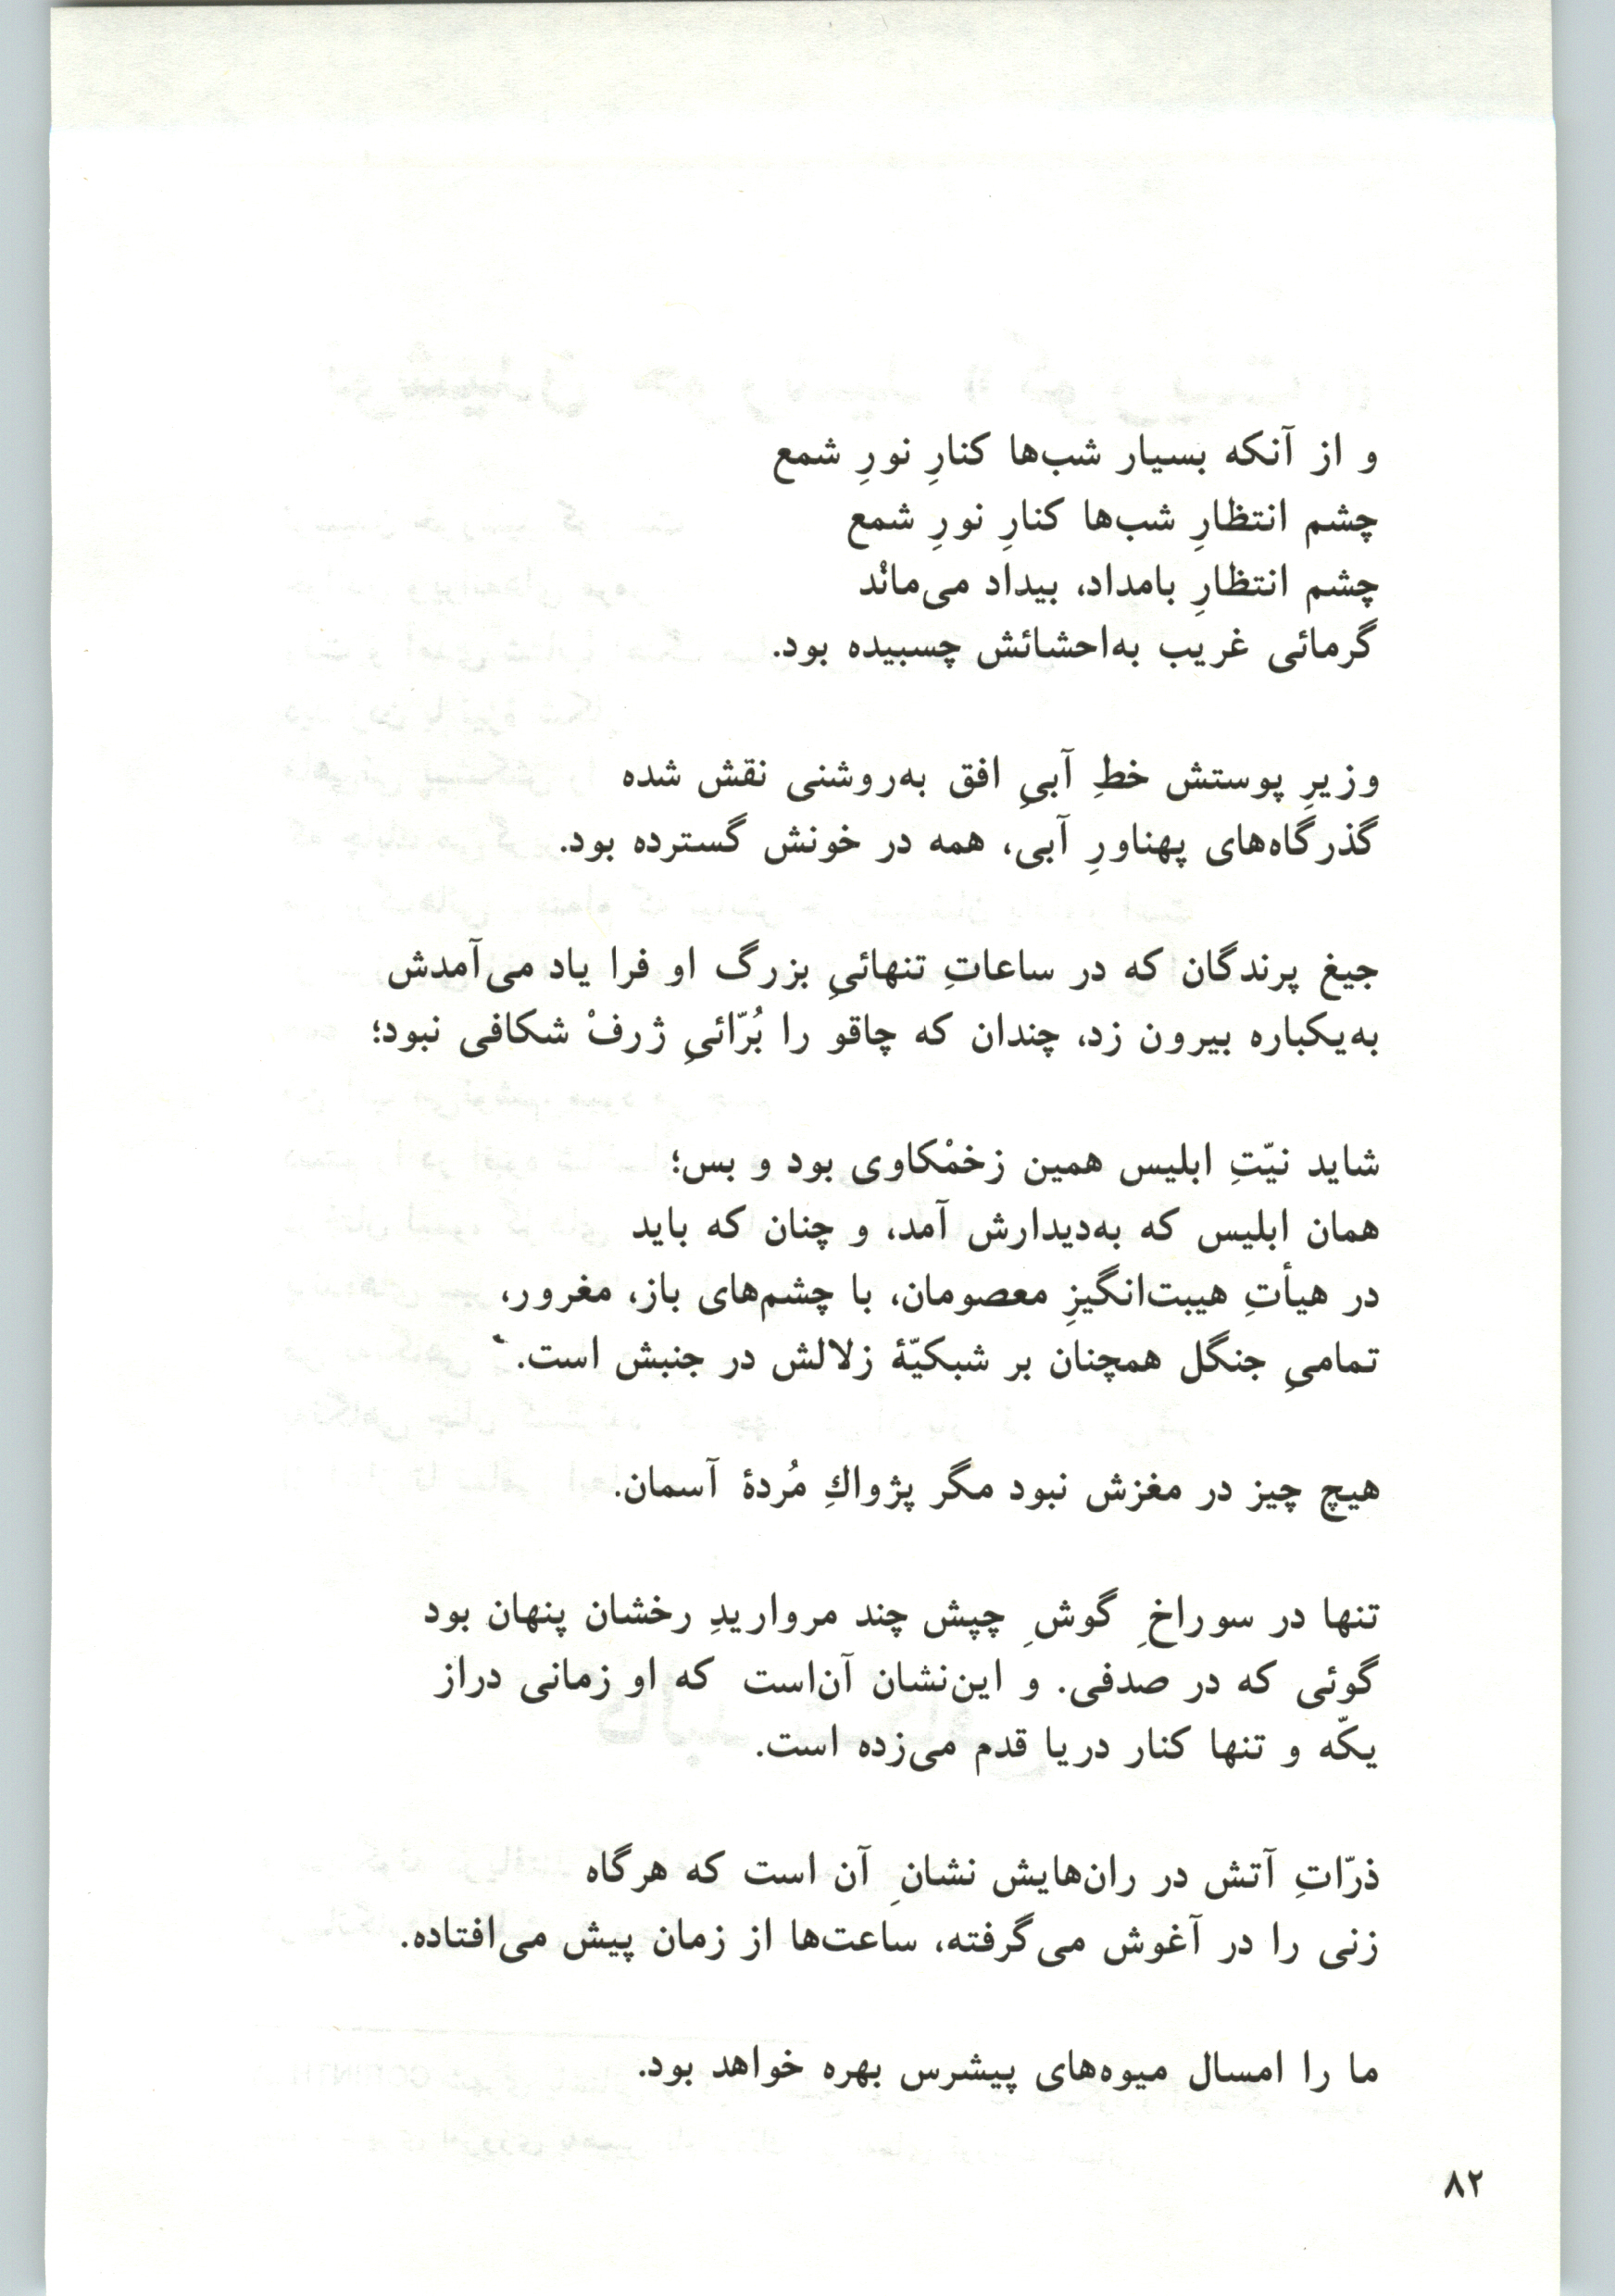 و از آنکه بسیار شب‌ها کنارِ نورِ شمع
چشم انتظارِ شب‌ها کنارِ نورِ شمع
چشم انتظارِ بامداد، بیداد می‌مانْد
گرمائی غریب به‌احشائش چسبیده بود.
وزیرِ پوستش خطِ آبیِ افق به‌روشنی نقش شده
گذرگاه‌های پهناورِ آبی، همه در خونش گسترده بود.
جیغ پرندگان که در ساعاتِ تنهائیِ بزرگ او فرا یاد می‌آمدش
به‌یکباره بیرون زد، چندان که چاقو را بُرّائیِ ژرفْ شکافی نبود؛
شاید نیّتِ ابلیس همین زخمْکاوی بود و بس؛
همان ابلیس که به‌دیدارش آمد، و چنان که باید
در هیأتِ هیبت‌انگیزِ معصومان، با چشم‌های باز، مغرور،
تمامیِ جنگل همچنان بر شبکیّهٔ زلالش در جنبش است.
هیچ چیز در مغزش نبود مگر پژواكِ مُردهٔ آسمان.
تنها در سوراخِ گوشِ چپش چند مرواریدِ رخشان پنهان بود
گوئی که در صدفی. و این‌نشان آن‌است که او زمانی دراز
یکّه و تنها کنار دریا قدم می‌زده است.
ذرّاتِ آتش در ران‌هایش نشانِ آن است که هرگاه
زنی را در آغوش می‌گرفته، ساعت‌ها از زمان پیش می‌افتاده.
ما را امسال میوه‌های پیشرس بهره خواهد بود.
۸۲